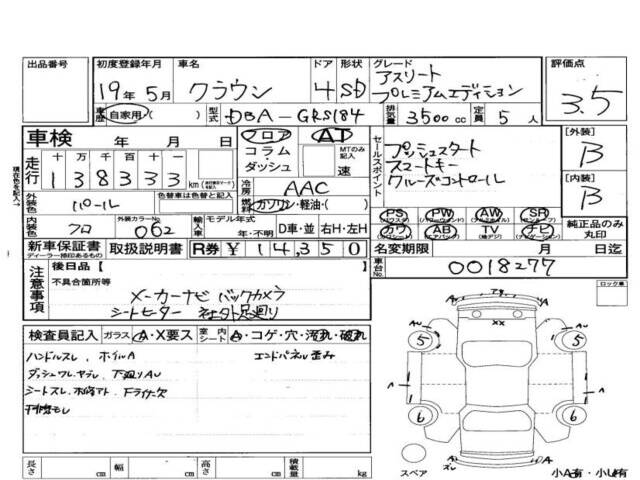 出品番号
初度登録年月 車名 ドア 形状 グレード 評価点
19年 5月 クラウン 4 SD アスリート
プレミアムエディション
3.5
車歴 自家用 ( ) 型式 DBA-GRS184 排気量 3500cc 定員 5人
車検 年 月 日
フロア AT
コラム・ダッシュ
MTのみ記入
速
セールスポイント
プッシュスタート
スマートキー
クルーズコントロール
[外装]
B
[内装]
B
走行 十 万 千 百 十 一
138333 km
現在色を記入→
色替車は色替と記入
冷房 AAC
外装色 パール
燃料 ガソリン・軽油・( )
内装色 クロ 外装カラーNo. 062
輸入車 モデル年式
年・不明 D車・並 右H・左H
PS PW AW SR
カワ AB TV ナビ
純正品のみ丸印
新車保証書 取扱説明書 R券 ¥14,350
ディーラー捺印あるもの
名変期限 月 日迄
車台No 0018277
注意事項
後日品 [ ]
不具合箇所等
メーカーナビ バックカメラ
シートヒーター
ロック車
検査員記入 ガラス A・X要ス 室内シート A・コゲ・穴・汚れ・破れ
ハンドルスレ、ホイルA エンドパネル歪み
下廻りAU
シートスレ
AU
5
5
6
6
A
XX
スペア
小A有・小U有
長さ cm 幅 cm 高さ cm 積載量 kg